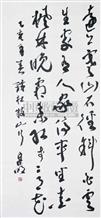 遠上寒山石徑斜白雲
生處有人家停車坐愛
楓林晚霜葉紅于二月花
杜牧山行